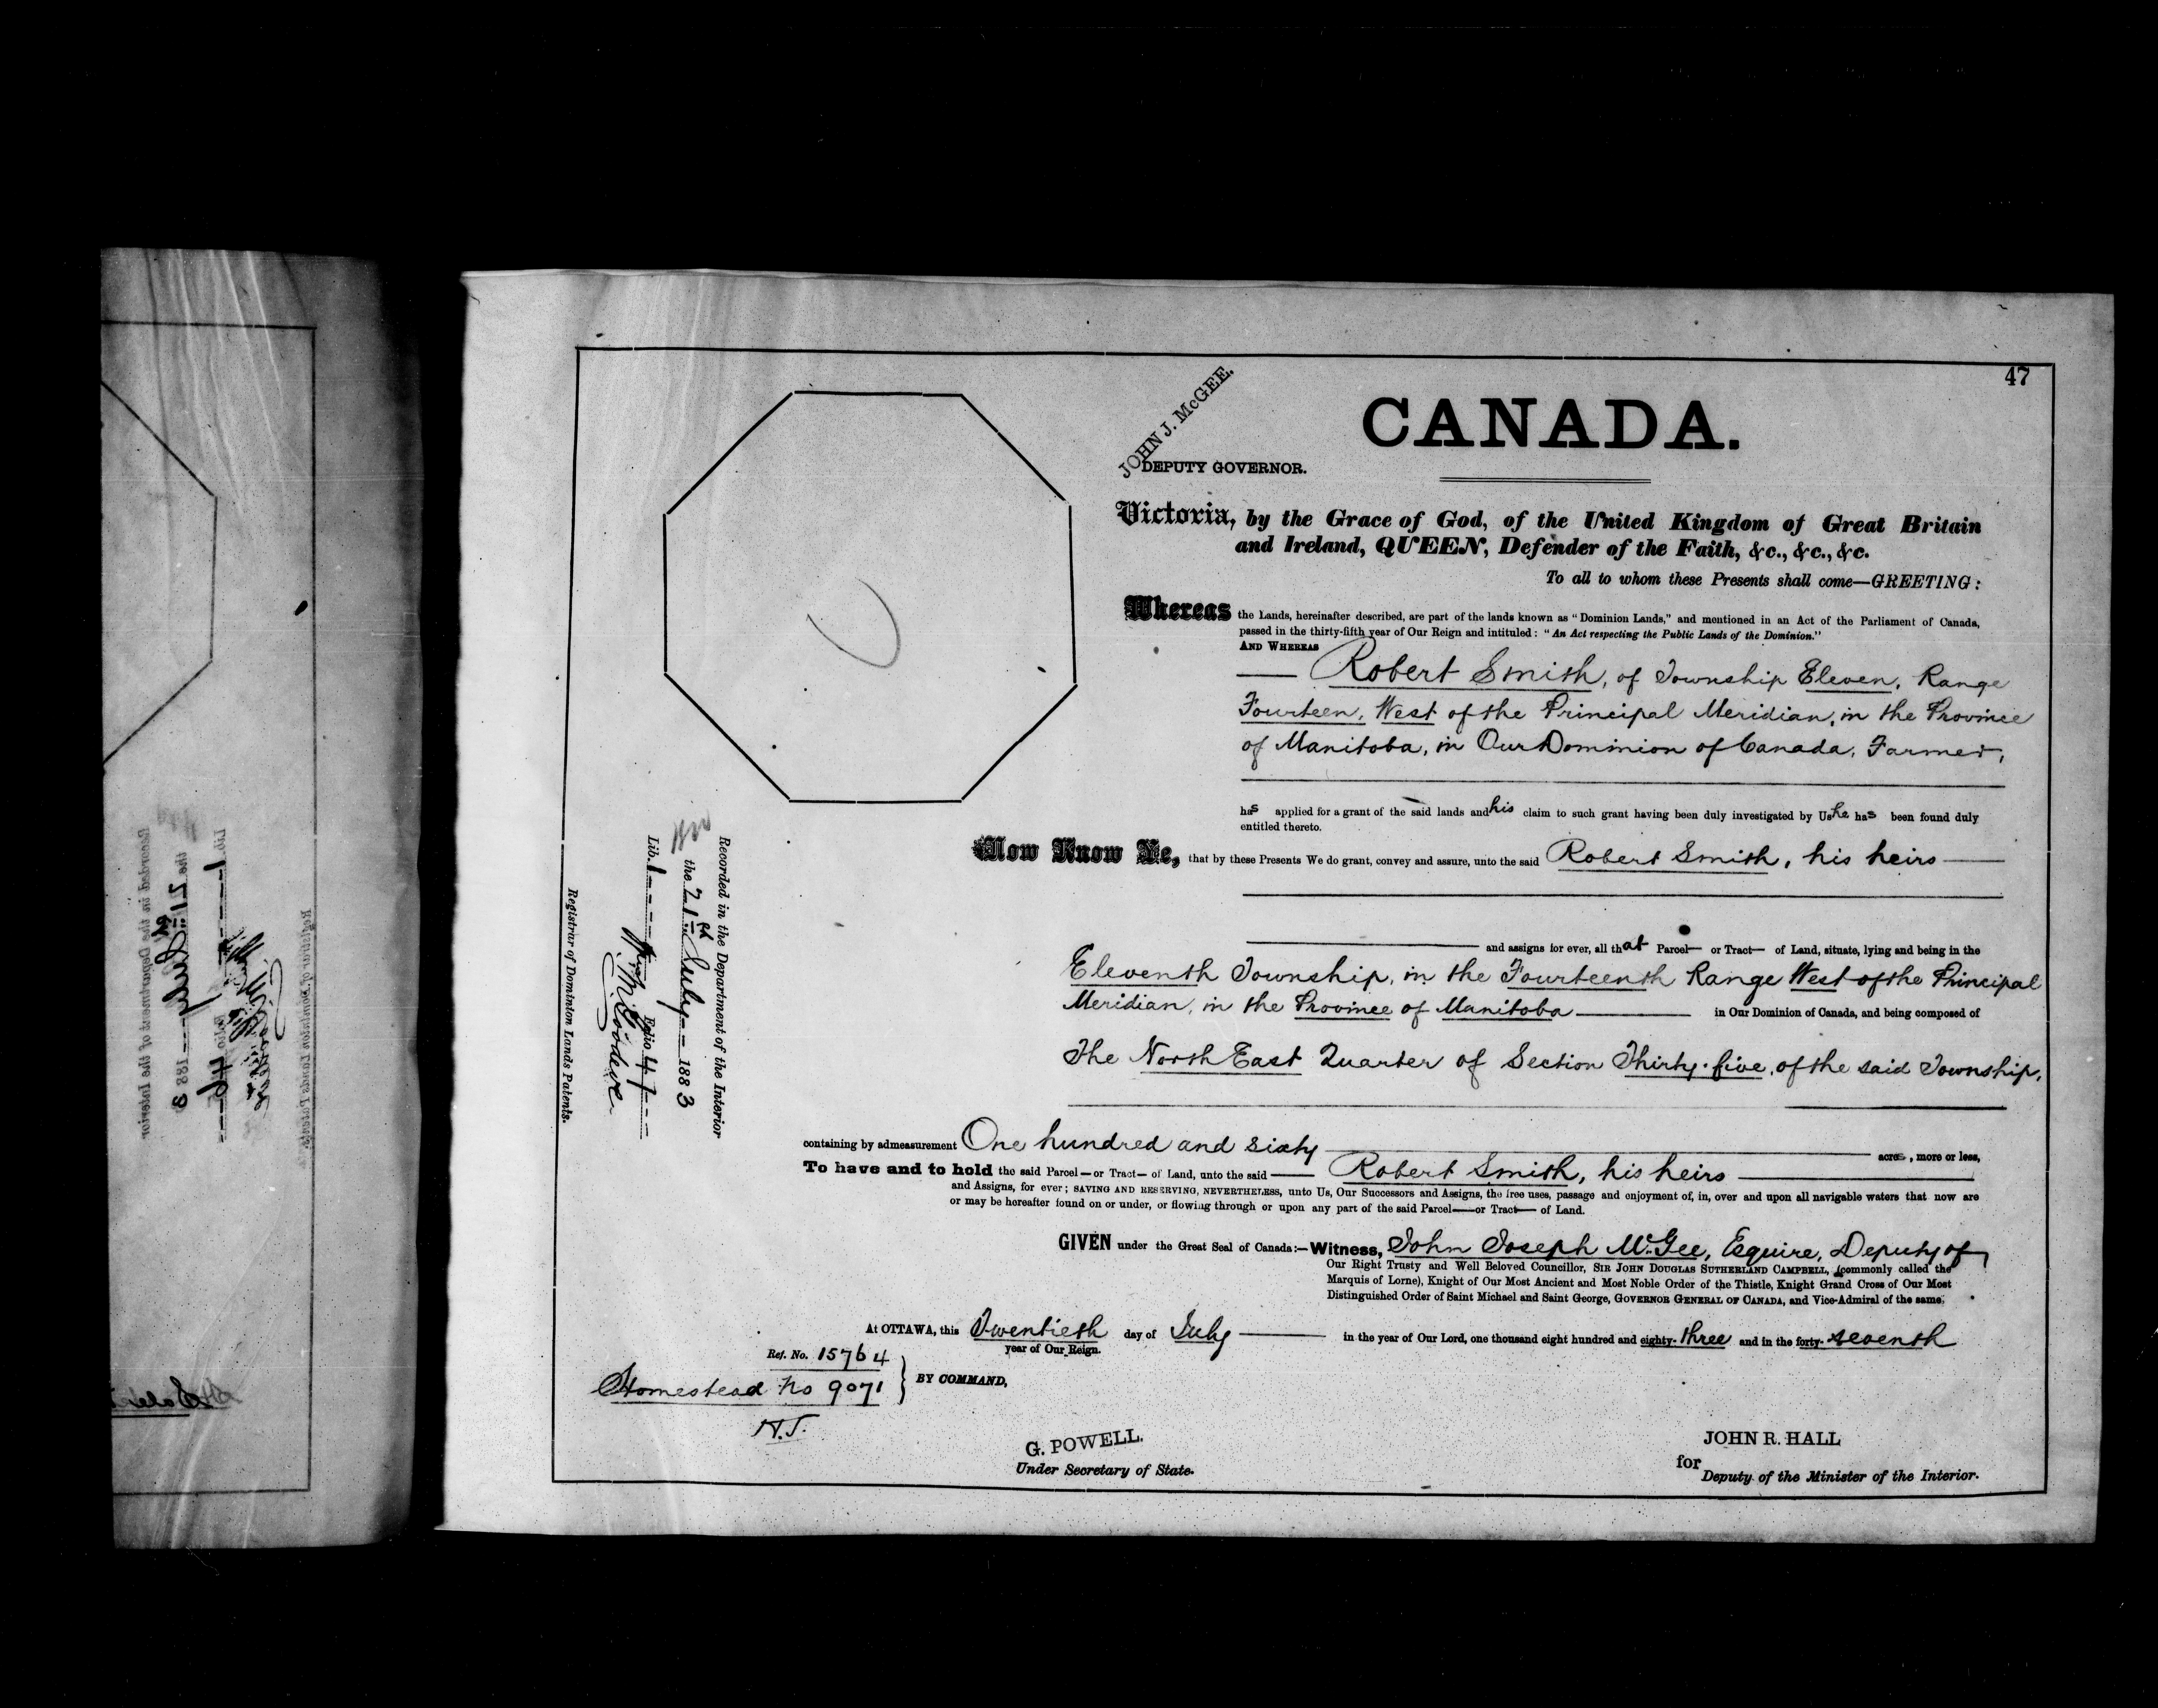 47
JOHN J. McGEE.
DEPUTY GOVERNOR.
CANADA.
Victoria, by the Grace of God, of the United Kingdom of Great Britain
and Ireland, QUEEN, Defender of the Faith, &c., &c., &c.
To all to whom these Presents shall come—GREETING:
Whereas the Lands, hereinafter described, are part of the lands known as "Dominion Lands," and mentioned in an Act of the Parliament of Canada,
passed in the thirty-fifth year of Our Reign and intituled: "An Act respecting the Public Lands of the Dominion."
AND WHEREAS
Robert Smith, of Township Eleven, Range
Fourteen, West of the Principal Meridian, in the Province
of Manitoba, in Our Dominion of Canada, Farmer,
has applied for a grant of the said lands and his claim to such grant having been duly investigated by Us he has been found duly
entitled thereto.
Now Know Ye, that by these Presents We do grant, convey and assure, unto the said Robert Smith, his heirs
and assigns for ever, all that Parcel— or Tract— of Land, situate, lying and being in the
Eleventh Township, in the Fourteenth Range West of the Principal
Meridian, in the Province of Manitoba — in Our Dominion of Canada, and being composed of
The North East Quarter of Section Thirty-five, of the said Township,
containing by admeasurement One hundred and sixty acres, more or less,
To have and to hold the said Parcel—or Tract— of Land, unto the said — Robert Smith, his heirs
and Assigns, for ever; SAVING AND RESERVING, NEVERTHELESS, unto Us, Our Successors and Assigns, the free uses, passage and enjoyment of, in, over and upon all navigable waters that now are
or may be hereafter found on or under, or flowing through or upon any part of the said Parcel—or Tract— of Land.
GIVEN under the Great Seal of Canada:—Witness, John Joseph McGee, Esquire, Deputy of
Our Right Trusty and Well Beloved Councillor, SIR JOHN DOUGLAS SUTHERLAND CAMPBELL, (commonly called the
Marquis of Lorne), Knight of Our Most Ancient and Most Noble Order of the Thistle, Knight Grand Cross of Our Most
Distinguished Order of Saint Michael and Saint George, GOVERNOR GENERAL OF CANADA, and Vice-Admiral of the same.
At OTTAWA, this Twentieth day of July — in the year of Our Lord, one thousand eight hundred and eighty-three and in the forty-seventh
year of Our Reign.
Ref. No. 15764
Homestead No 9071
BY COMMAND,
N.T.
G. POWELL.
Under Secretary of State.
JOHN R. HALL
for Deputy of the Minister of the Interior.
Recorded in the Department of the Interior
the 21st July 1883
Lib. 1 Folio 47
Goodeve
Registrar of Dominion Lands Patents.